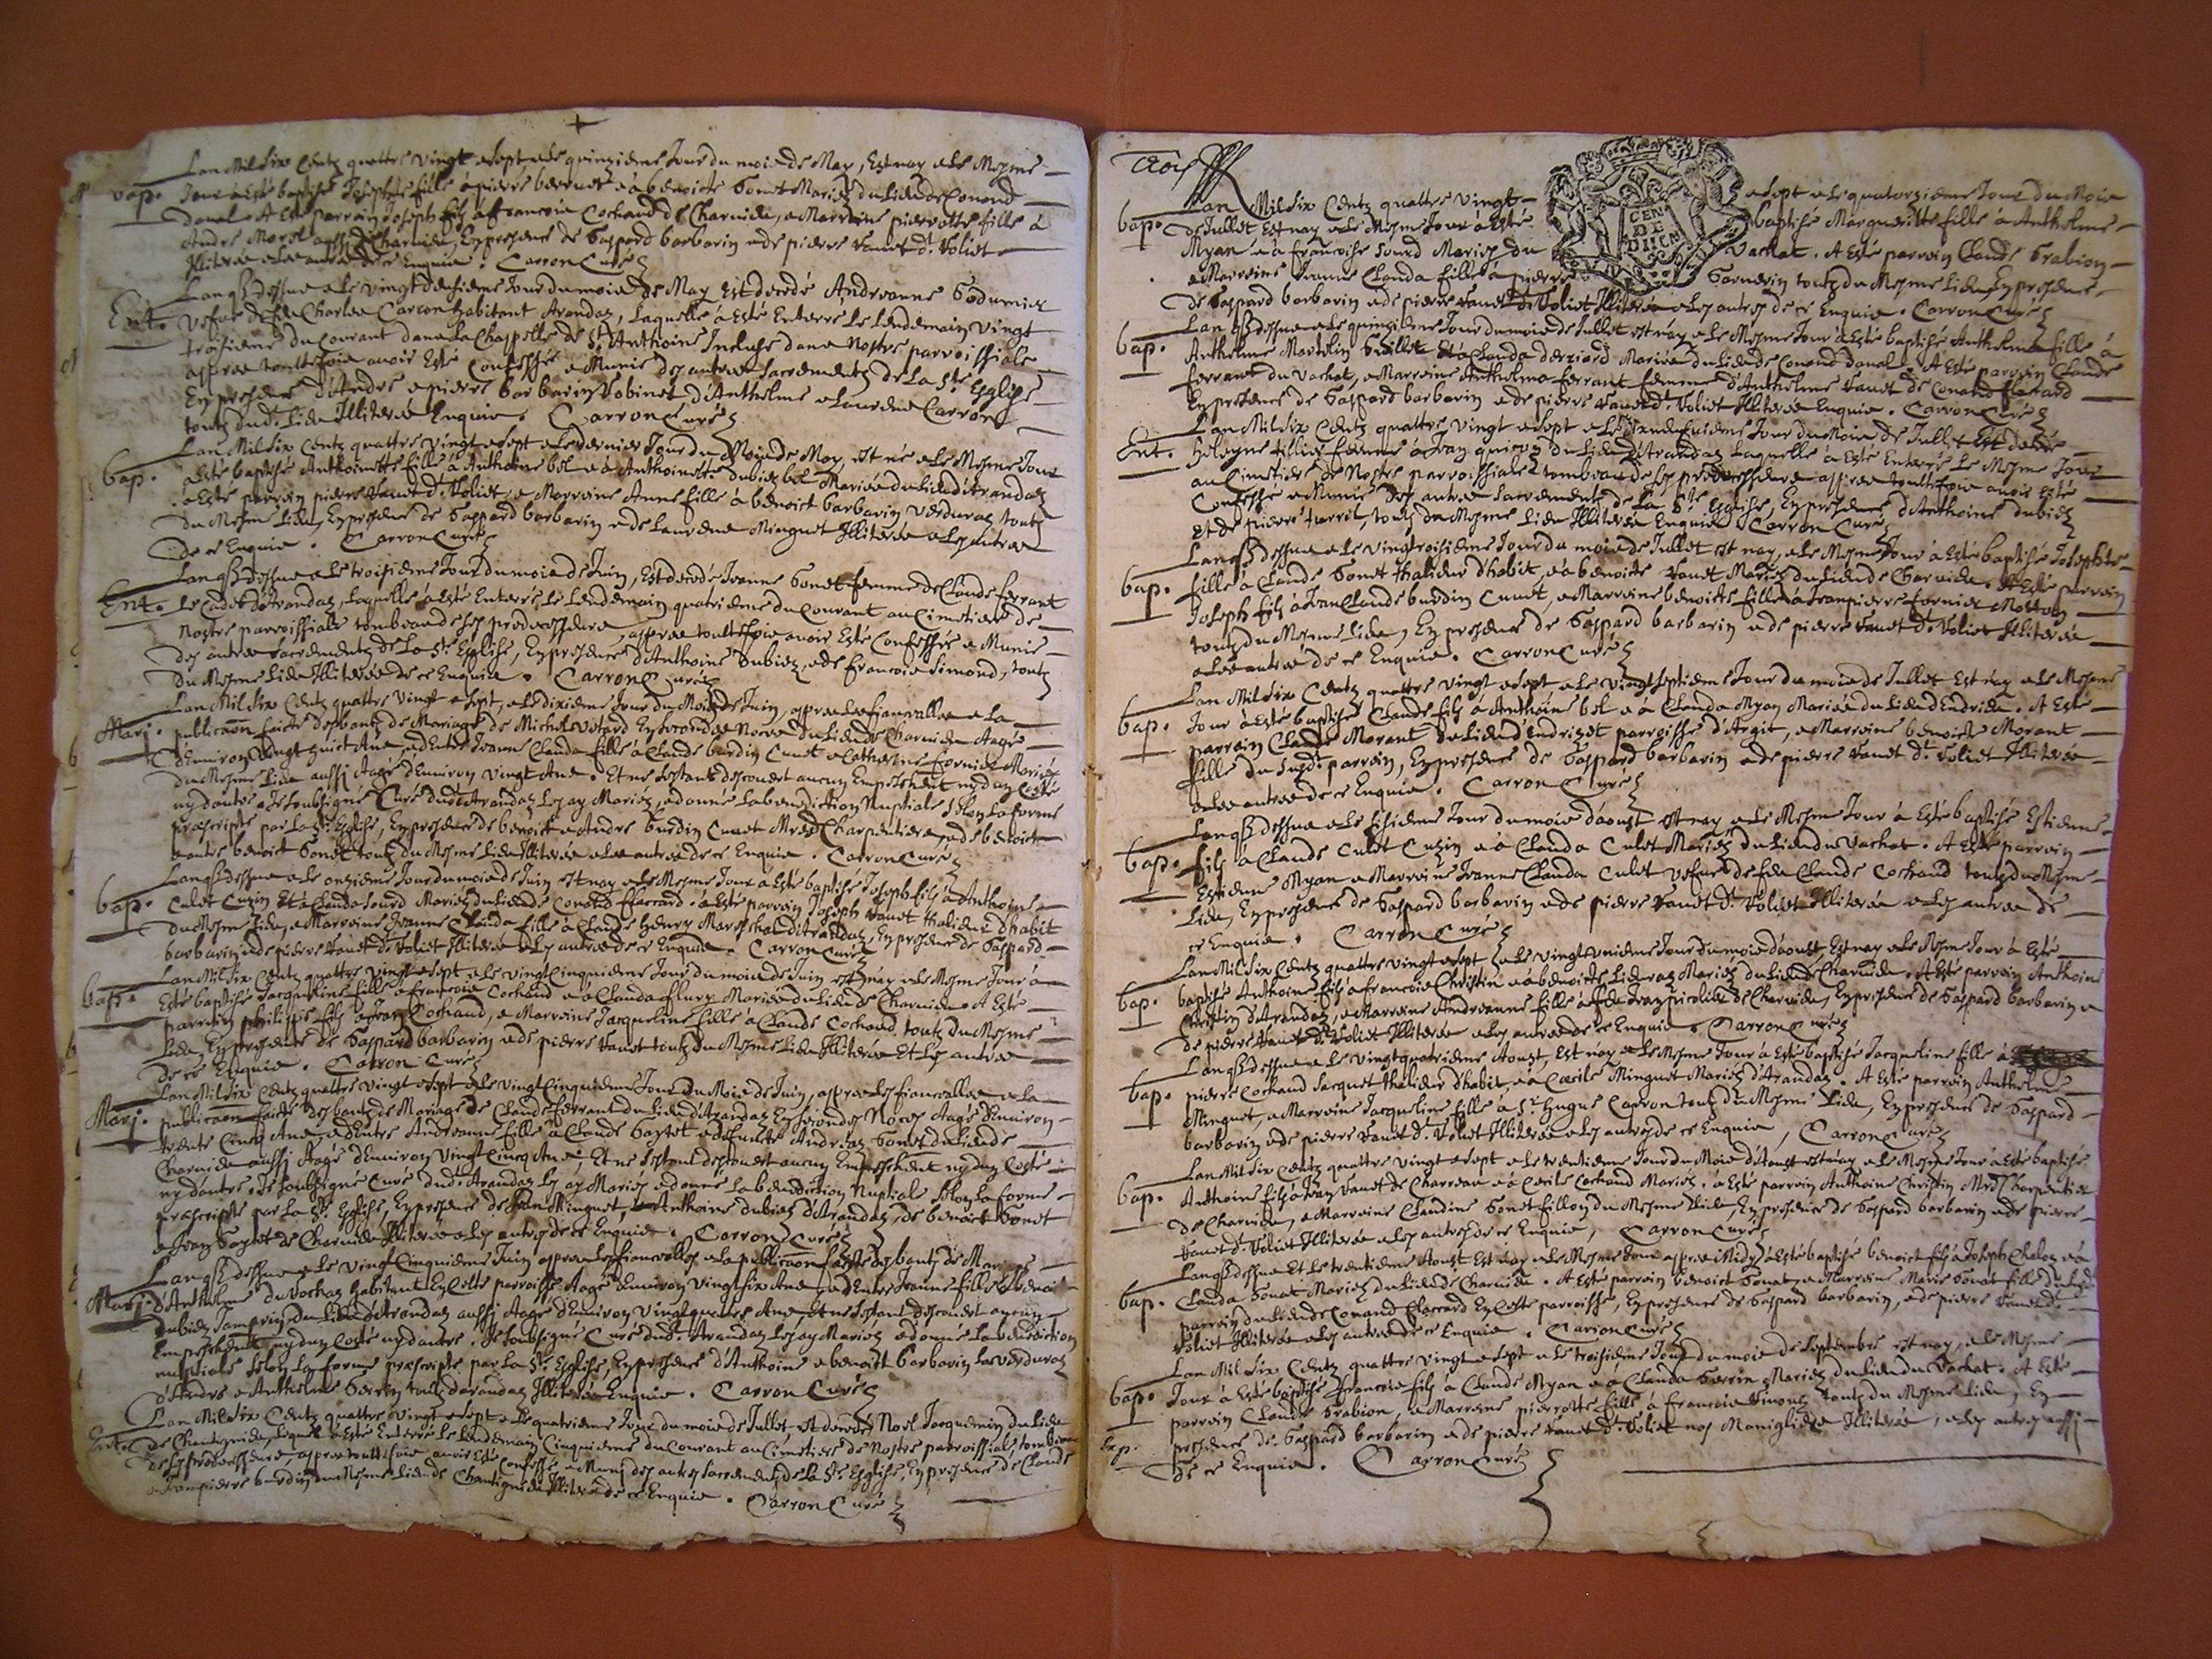 Lan Mil Six Centz quattre vingt & sept & le quinzieme Jour du mois de May, Est nay & le Mesme
bap. Jour a Esté baptisé Josephte fille à pierre & à benoiste Bonet Mariez du Lieu de Conand
A Esté parrein Joseph fils à francois Cochaud de Charuieu, & Marreine pierrotte fille à
André Morel aussi de Charuieu, En presence de Gaspard barbarin & de pierre Vanet dt. Voliet
Illiteres & les autres de ce Enquis. Carron Curé
Lan qs dessus & le vingt deuxieme Jour du mois de May Est decedé Andreanne
Ent. vefue de feu Charles Carron habitant Arandaz, Laquelle à Esté Enterré le lendemain vingt
troisieme du Courant dans La Chappelle de St. Anthoine Incluse dans Nostre parroissiale
appres touttefois auoir Esté Confessé & Munie des autres Sacrements de La Ste. Esglise
En presence d'André & pierre barbarin d'Anthelme & Laurens Carron
toutz dud. Lieu Illiteres Enquis. Carron Curé
Lan Mil Six Centz quattre vingt & sept & le dernier Jour du Mois de May, est né & le Mesme Jour
bap. a Esté baptisé Anthoinette fille à Anthoine bel & à Anthoinette dubiez bel Mariés du Lieu d'Arandaz
a Esté parrein pierre Vanet dt. Voliet, & Marreine Anne fille à benoist barbarin Verduraz toutz
du Mesme Lieu, En presence de Gaspard barbarin & de Laurens Minguet Illiteres & les autres
de ce Enquis. Carron Curé
Lan qs dessus & le troisieme Jour du mois de Juin, Est decedé Jeanne Bonet femme de Claude ferrant
Ent. le Cadet d'Arandaz, Laquelle à Esté Enterré le lendemain quatrieme du Courant au Cimetiere de
Nostre parroissiale tombeau de ses predecesseurs, appres touttefois auoir Esté Confessée & Munie
des autres Sacrements de La Ste. Esglise, En presence d'Anthoine Dubiez, & de francois Simond, toutz
du Mesme Lieu Illiteres de ce Enquis. Carron Curé
Lan Mil Six Centz quattre vingt & sept, & le dixieme Jour du Mois de Juin, appres les fiancailles & la
Mari. publicaon faicte des bantz de Mariage de Michel En secondes Noces du Lieu de Charuieu Aagé
d'Enuiron vingt huict Ans, & d'Entre Jeanne Clauda fille à Claude burdin Cunet & Catherine fornier Mariéz
du Mesme Lieu aussi Aagé d'Enuiron vingt Ans. Et ne s'estant descouert aucun Empeschent ny d'un Costé
ny d'autre Je Soubsigné Curé dudt. Arandaz Les ay Mariéz, & donné La benediction Nuptiale Selon La forme
prescripte par La Ste. Esglise, En presence de benoist & André burdin Cunet Mres Charpentiers, & de benoist
benoist Bonet toutz du Mesme Lieu Illiteres & les autres de ce Enquis. Carron Curé
Lan qs dessus & le onzieme Jour du mois de Juin est nay & le Mesme Jour a Esté baptisé Joseph fils à Anthoine
bap. Culet Cuzin Et à Clauda Jourd Mariéz du Lieu de Conand flaccard. a Esté parrein Joseph Vanet thalieur d'habit
du Mesme Lieu, & Marreine Jeanne Clauda fille à Claude Henry Mareschal d'Arandaz, En presence de Gaspard
barbarin & de pierre Vanet dt. Voliet Illiteres & les autres de ce Enquis. Carron Curé
Lan Mil Six Centz quattre vingt & sept & le vingt Cinquieme Jour du mois de Juin est nay & le Mesme Jour à
bap. Esté baptisé Jacqueline fille à francois Cochaud & à Clauda fleury Mariés du Lieu de Charuieu. A Esté
parrein philippe fils à Jean Cochaud, & Marreine Jacqueline fille à Claude Cochaud toutz du Mesme
Lieu, En presence de Gaspard barbarin & de pierre Vanet toutz du Mesme Lieu Illiteres Et les autres
de ce Enquis. Carron Curé
Lan Mil Six Centz quattre vingt & sept & le vingt Cinquieme Jour du Mois de Juin, appres les fiancailles & la
Mari. publicaon faicte des bantz de Mariage de Claude ferrant du Lieu d'Arandaz En secondes Noces Aagé d'Enuiron
trente Cinq Ans, & d'Entre Andreanne fille à Claude & deffuncte Andreaz Bonet du Lieu de
Charuieu aussi Aagé d'Enuiron vingt Cinq Ans, Et ne s'estant descouert aucun Empeschent ny d'un Costé
ny d'autre. Je Soubsigné Curé dudt. Arandaz Les ay Mariéz & donné La benediction Nuptiale Selon La forme
prescripte par La Ste. Esglise, En presence de Jean Minguet, Anthoine dubiez d'Arandaz, de benoist Bonet
& Jean de Charuieu Illiteres & les autres de ce Enquis. Carron Curé
Lan qs dessus & le vingt Cinquieme Juin appres les fiancailles & la publicaon faicte des bantz de Mariage
Mari. d'Anthelme du Vachaz habitant En Cette parroisse Aagé d'Enuiron vingt six Ans, & d'Entre Jeanne fille à benoist
dubiez du Lieu d'Arandaz aussi Aagé d'Enuiron vingt quatre Ans, Et ne s'estant descouert aucun
Empeschent ny d'un Costé ny d'autre. Je Soubsigné Curé dudt. Arandaz Les ay Mariéz & donné La benediction
nuptiale Selon La forme prescripte par La Ste. Esglise, En presence d'Anthoine & benoist barbarin La verduraz
d'André & Anthelme toutz d'Arandaz Illiteres Enquis. Carron Curé
Lan Mil Six Centz quattre vingt & sept & le quatrieme Jour du mois de Jullet est decedé Noel Jacquemin du Lieu
Ent. de Chantignieu, Lequel à Esté Enterré le lendemain Cinquieme du Courant au Cimetiere de Nostre parroissiale tombeau
de ses predecesseurs, appres touttefois auoir Esté Confessé & Muni des autres Sacrements de La Ste. Esglise, En presence de Claude
& Jean pierre burdin du Mesme Lieu de Chantignieu Illiteres de ce Enquis. Carron Curé
trois
CEN
DE
DIJON
Lan Mil Six Centz quattre vingt & sept & le quatorzieme Jour du Mois
bap. de Jullet Est nay & le Mesme Jour à Esté baptisé Margueritte fille à Anthelme
Myan & à francoise Jourd Mariés du Vachat. A Esté parrein Claude Grabion
& Marreine Jeanne Clauda fille à pierre toutz du Mesme Lieu, En presence
de Gaspard barbarin & de pierre Vanet dt. Voliet Illiteres & les autres de ce Enquis. Carron Curé
Lan qs dessus & le quinzieme Jour du mois de Jullet est nay & le Mesme Jour à Esté baptisé Anthelma fille à
bap. Anthelme Martelin Et à Clauda Mariés du Lieu de Conand A Esté parrein Claude
ferrant du Vachat, & Marreine Anthelma ferrant femme d'Anthelme Vanet de Conand flaccard
En presence de Gaspard barbarin & de pierre Vanet dt. Voliet Illiteres Enquis. Carron Curé
Lan Mil Six Centz quattre vingt & sept & le Jour du Mois de Jullet Est decedé
Ent. femme à Jean du Lieu d'Arandaz Laquelle à Esté Enterré le Mesme Jour
au Cimetiere de Nostre parroissiale tombeau de ses predecesseurs appres touttefois auoir Esté
Confessé & Munie des autres Sacrements de La Ste. Esglise, En presence d'Anthoine dubiez
Et de pierre toutz du Mesme Lieu Illiteres Enquis. Carron Curé
Lan qs dessus & le vingt troisieme Jour du mois de Jullet est nay, & le Mesme Jour à Esté baptisé Josephte
bap. fille à Claude Bonet thalieur d'habit, & à benoiste Vanet Mariés du Lieu de Charuieu. A Esté parrein
Joseph fils à Jean Claude burdin Cunet, & Marreine benoiste fille à Jean pierre fornier
toutz du Mesme Lieu, En presence de Gaspard barbarin & de pierre Vanet dt. Voliet Illiteres
& les autres de ce Enquis. Carron Curé
Lan Mil Six Centz quattre vingt & sept & le vingt septieme Jour du mois de Jullet Est nay & le Mesme
bap. Jour à Esté baptisé Claude fils à Anthoine bel & à Clauda Myan Mariés du Lieu d'Endrieu. A Esté
parrein Claude Morant du Lieu d'Indrieu parroisse d'Argit, & Marreine benoiste Morant
fille du susdt. parrein, En presence de Gaspard barbarin & de pierre Vanet dt. Voliet Illiteres
& les autres de ce Enquis. Carron Curé
Lan qs dessus & le sixieme Jour du mois d'aoust est nay & le Mesme Jour à Esté baptisé Estienne
bap. fils à Claude Culet Cuzin & à Clauda Culet Mariés du Lieu du Vachat. A Esté parrein
Estienne Myan & Marreine Jeanne Clauda Culet vefue de feu Claude Cochaud toutz du Mesme
Lieu, En presence de Gaspard barbarin & de pierre Vanet dt. Voliet Illiteres & les autres de
ce Enquis. Carron Curé
Lan Mil Six Centz quattre vingt & sept & le vingt unieme Jour du mois d'aoust Est nay & le Mesme Jour à Esté
bap. baptisé Anthoine fils à francois Christin & à benoiste Mariés du Lieu de Charuieu. A Esté parrein Anthoine
Christin d'Arandaz, & Marreine Andreanne fille à feu Jean de Charuieu, En presence de Gaspard barbarin &
de pierre Vanet dt. Voliet Illiteres & les autres de ce Enquis. Carron Curé
Lan qs dessus & le vingt quatrieme Aoust, Est nay & le Mesme Jour à Esté baptisé Jacqueline fille à
bap. pierre Cochaud Jacquet thalieur d'habit, & à Cecile Minguet Mariés d'Arandaz. A Esté parrein Anthelme
Minguet, & Marreine Jacqueline fille à Sr. Hugue Carron toutz du Mesme Lieu, En presence de Gaspard
barbarin & de pierre Vanet dt. Voliet Illiteres & les autres de ce Enquis, Carron Curé
Lan Mil Six Centz quattre vingt & sept & le trentieme Jour du Mois d'Aoust est nay & le Mesme Jour à Esté baptisé
bap. Anthoine fils à Jean Vanet de Charveau & à Cecile Cochaud Mariés. à Esté parrein Anthoine Christin Mre Charpentier
de Charuieu, & Marreine Claudine Bonet fillon du Mesme Lieu, En presence de Gaspard barbarin & de pierre
Vanet dt. Voliet Illiteres & les autres de ce Enquis, Carron Curé
Lan qs dessus Et le trentieme Aoust Est nay & le Mesme Jour appres Midy à Esté baptisé benoist fils à Joseph Chaloz & à
bap. Clauda Bonat Mariés du Lieu de Charuieu. A Esté parrein benoist Bonat, & Marreine Marie Bonat fille du susdt.
parrein du Lieu de Conand flaccard En Ceste parroisse, En presence de Gaspard barbarin, & de pierre Vanet dt.
Voliet Illiteres & les autres de ce Enquis. Carron Curé
Lan Mil Six Centz quattre vingt & sept & le troisieme Jour du mois de Septembre est nay, & le Mesme
bap. Jour à Esté baptisé francois fils à Claude Myan & à Clauda Mariés du Lieu du Vachat. A Esté
parrein Claude Grabion, & Marreine pierrotte fille à francois toutz du Mesme Lieu, En
presence de Gaspard barbarin & de pierre Vanet dt. Voliet nos Manigliers Illiteres, & les autres aussi
de ce Enquis. Carron Curé